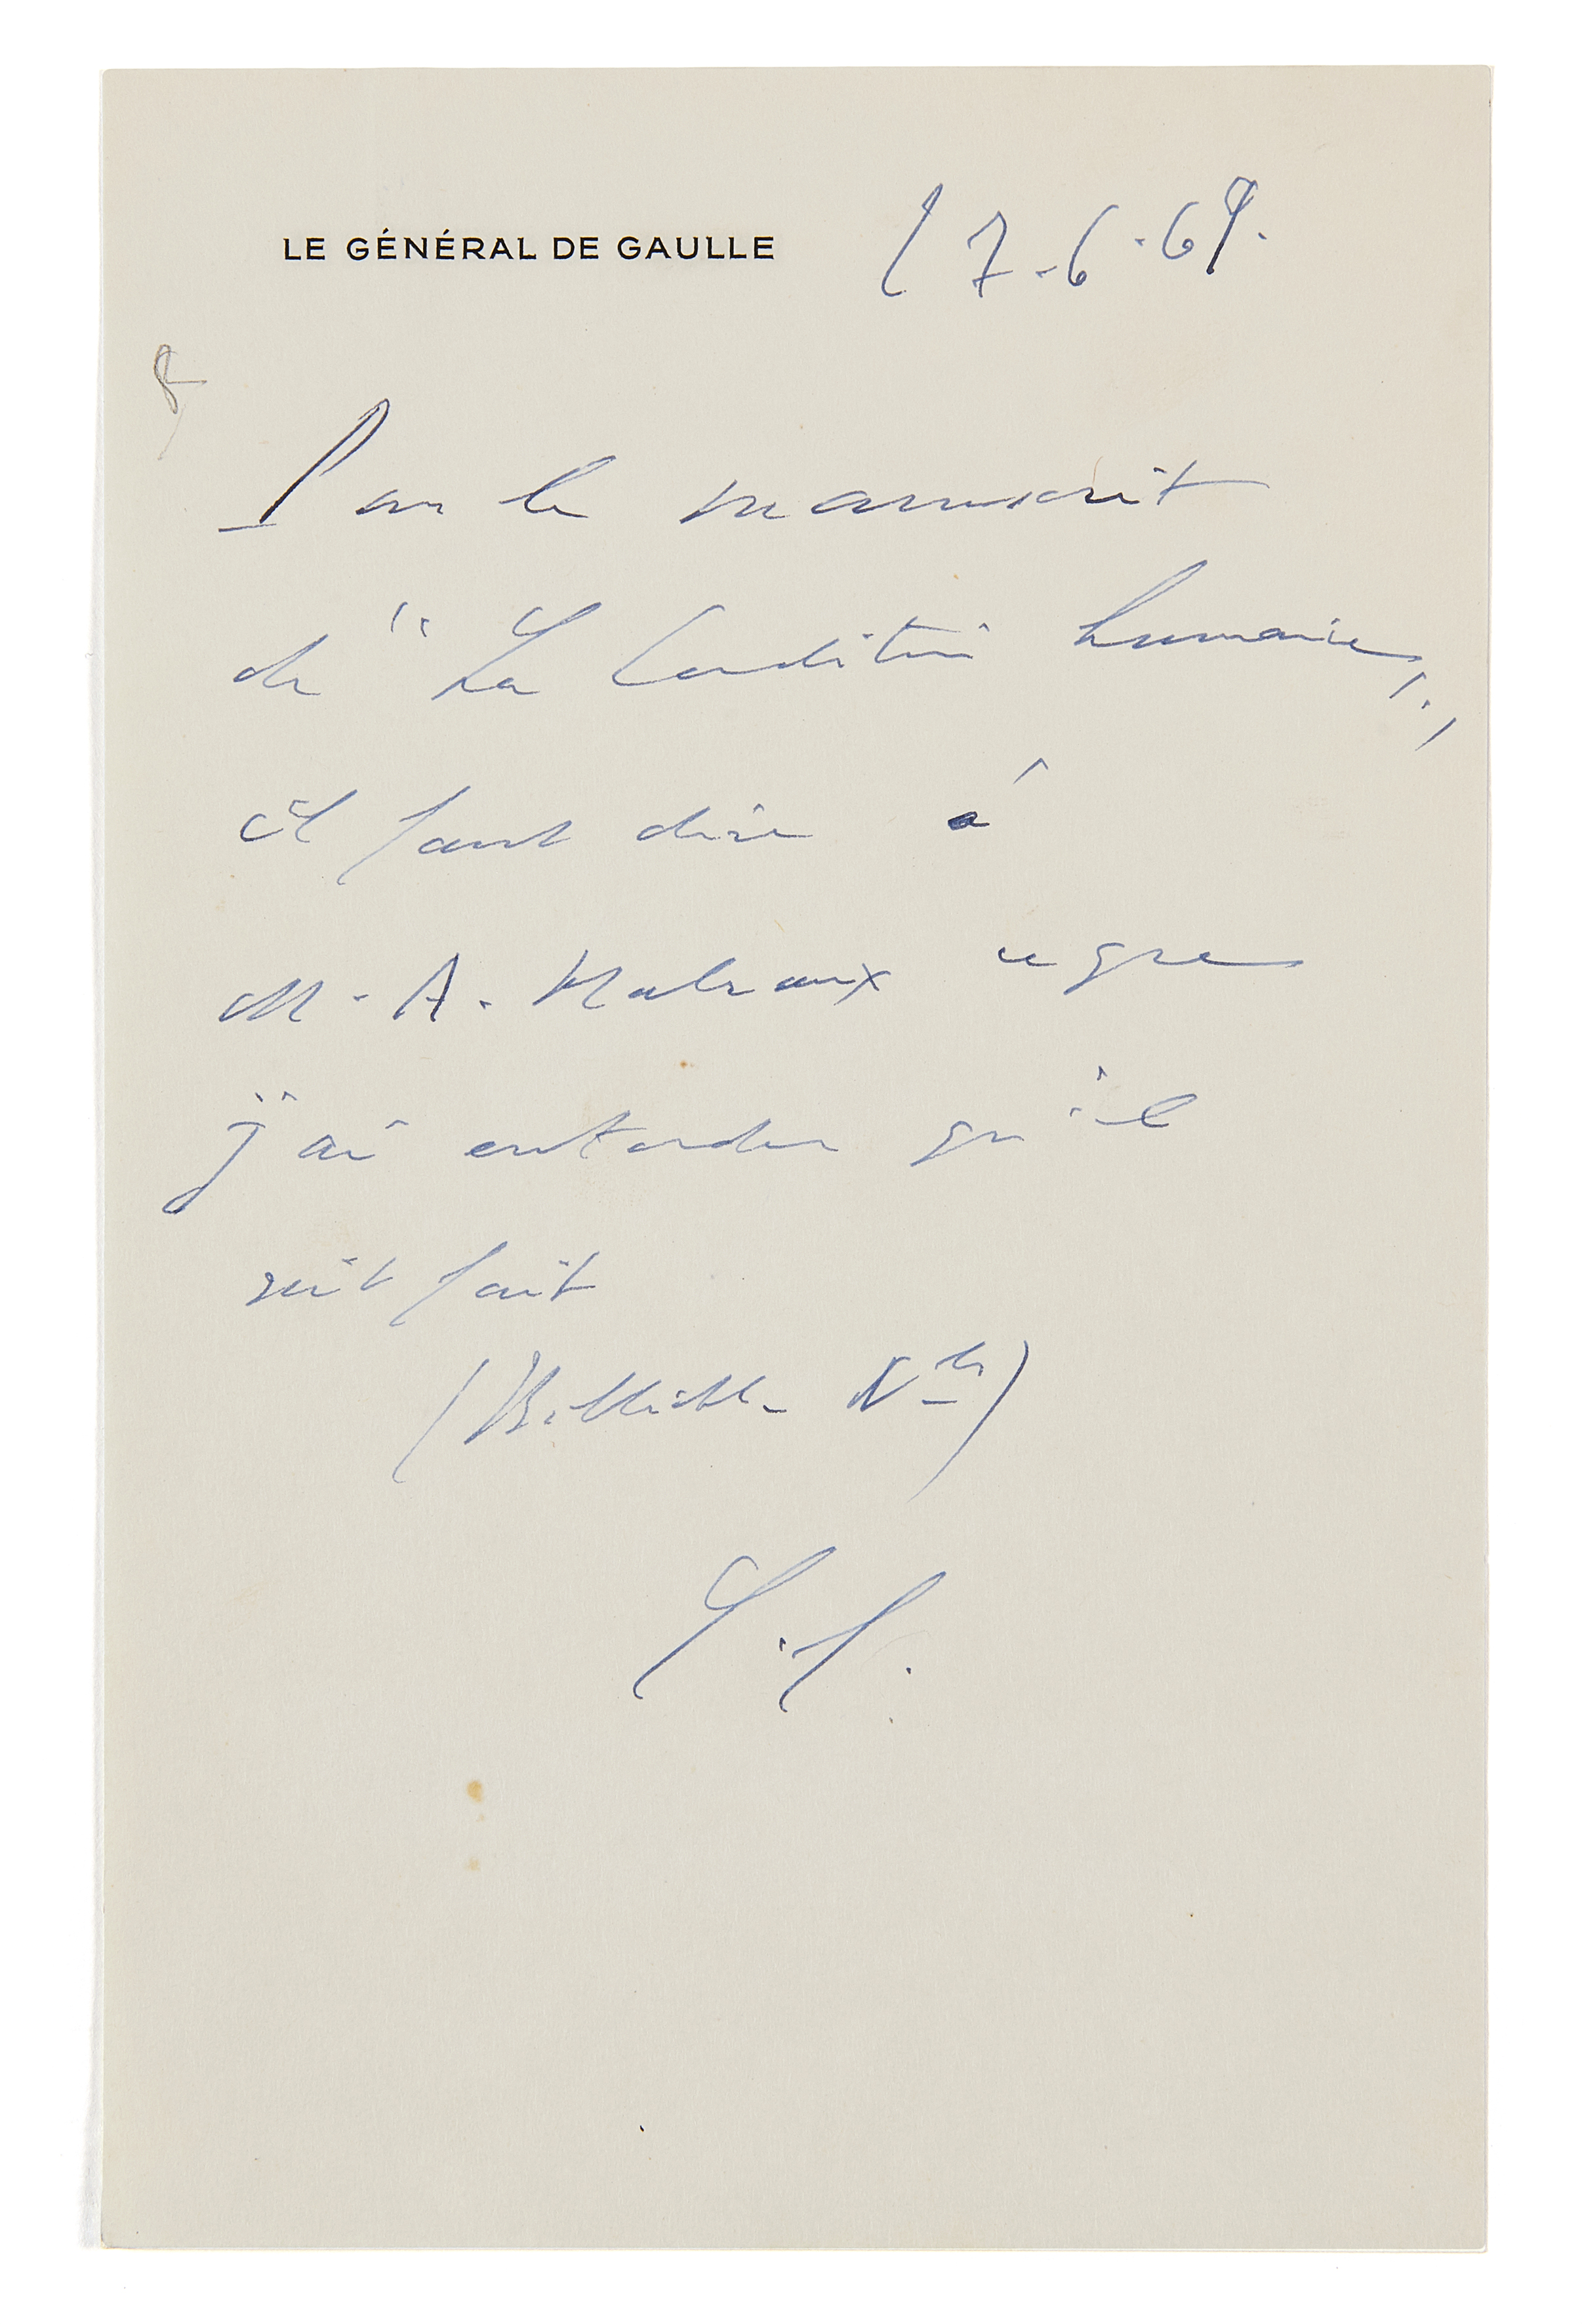 LE GÉNÉRAL DE GAULLE 17.6.69.
Pour le manuscrit
de "La Condition humaine",
il faut dire à
M. A. Malraux ce que
j'ai entendu qu'il
soit fait
(Biblioth. Nle)
C.G.